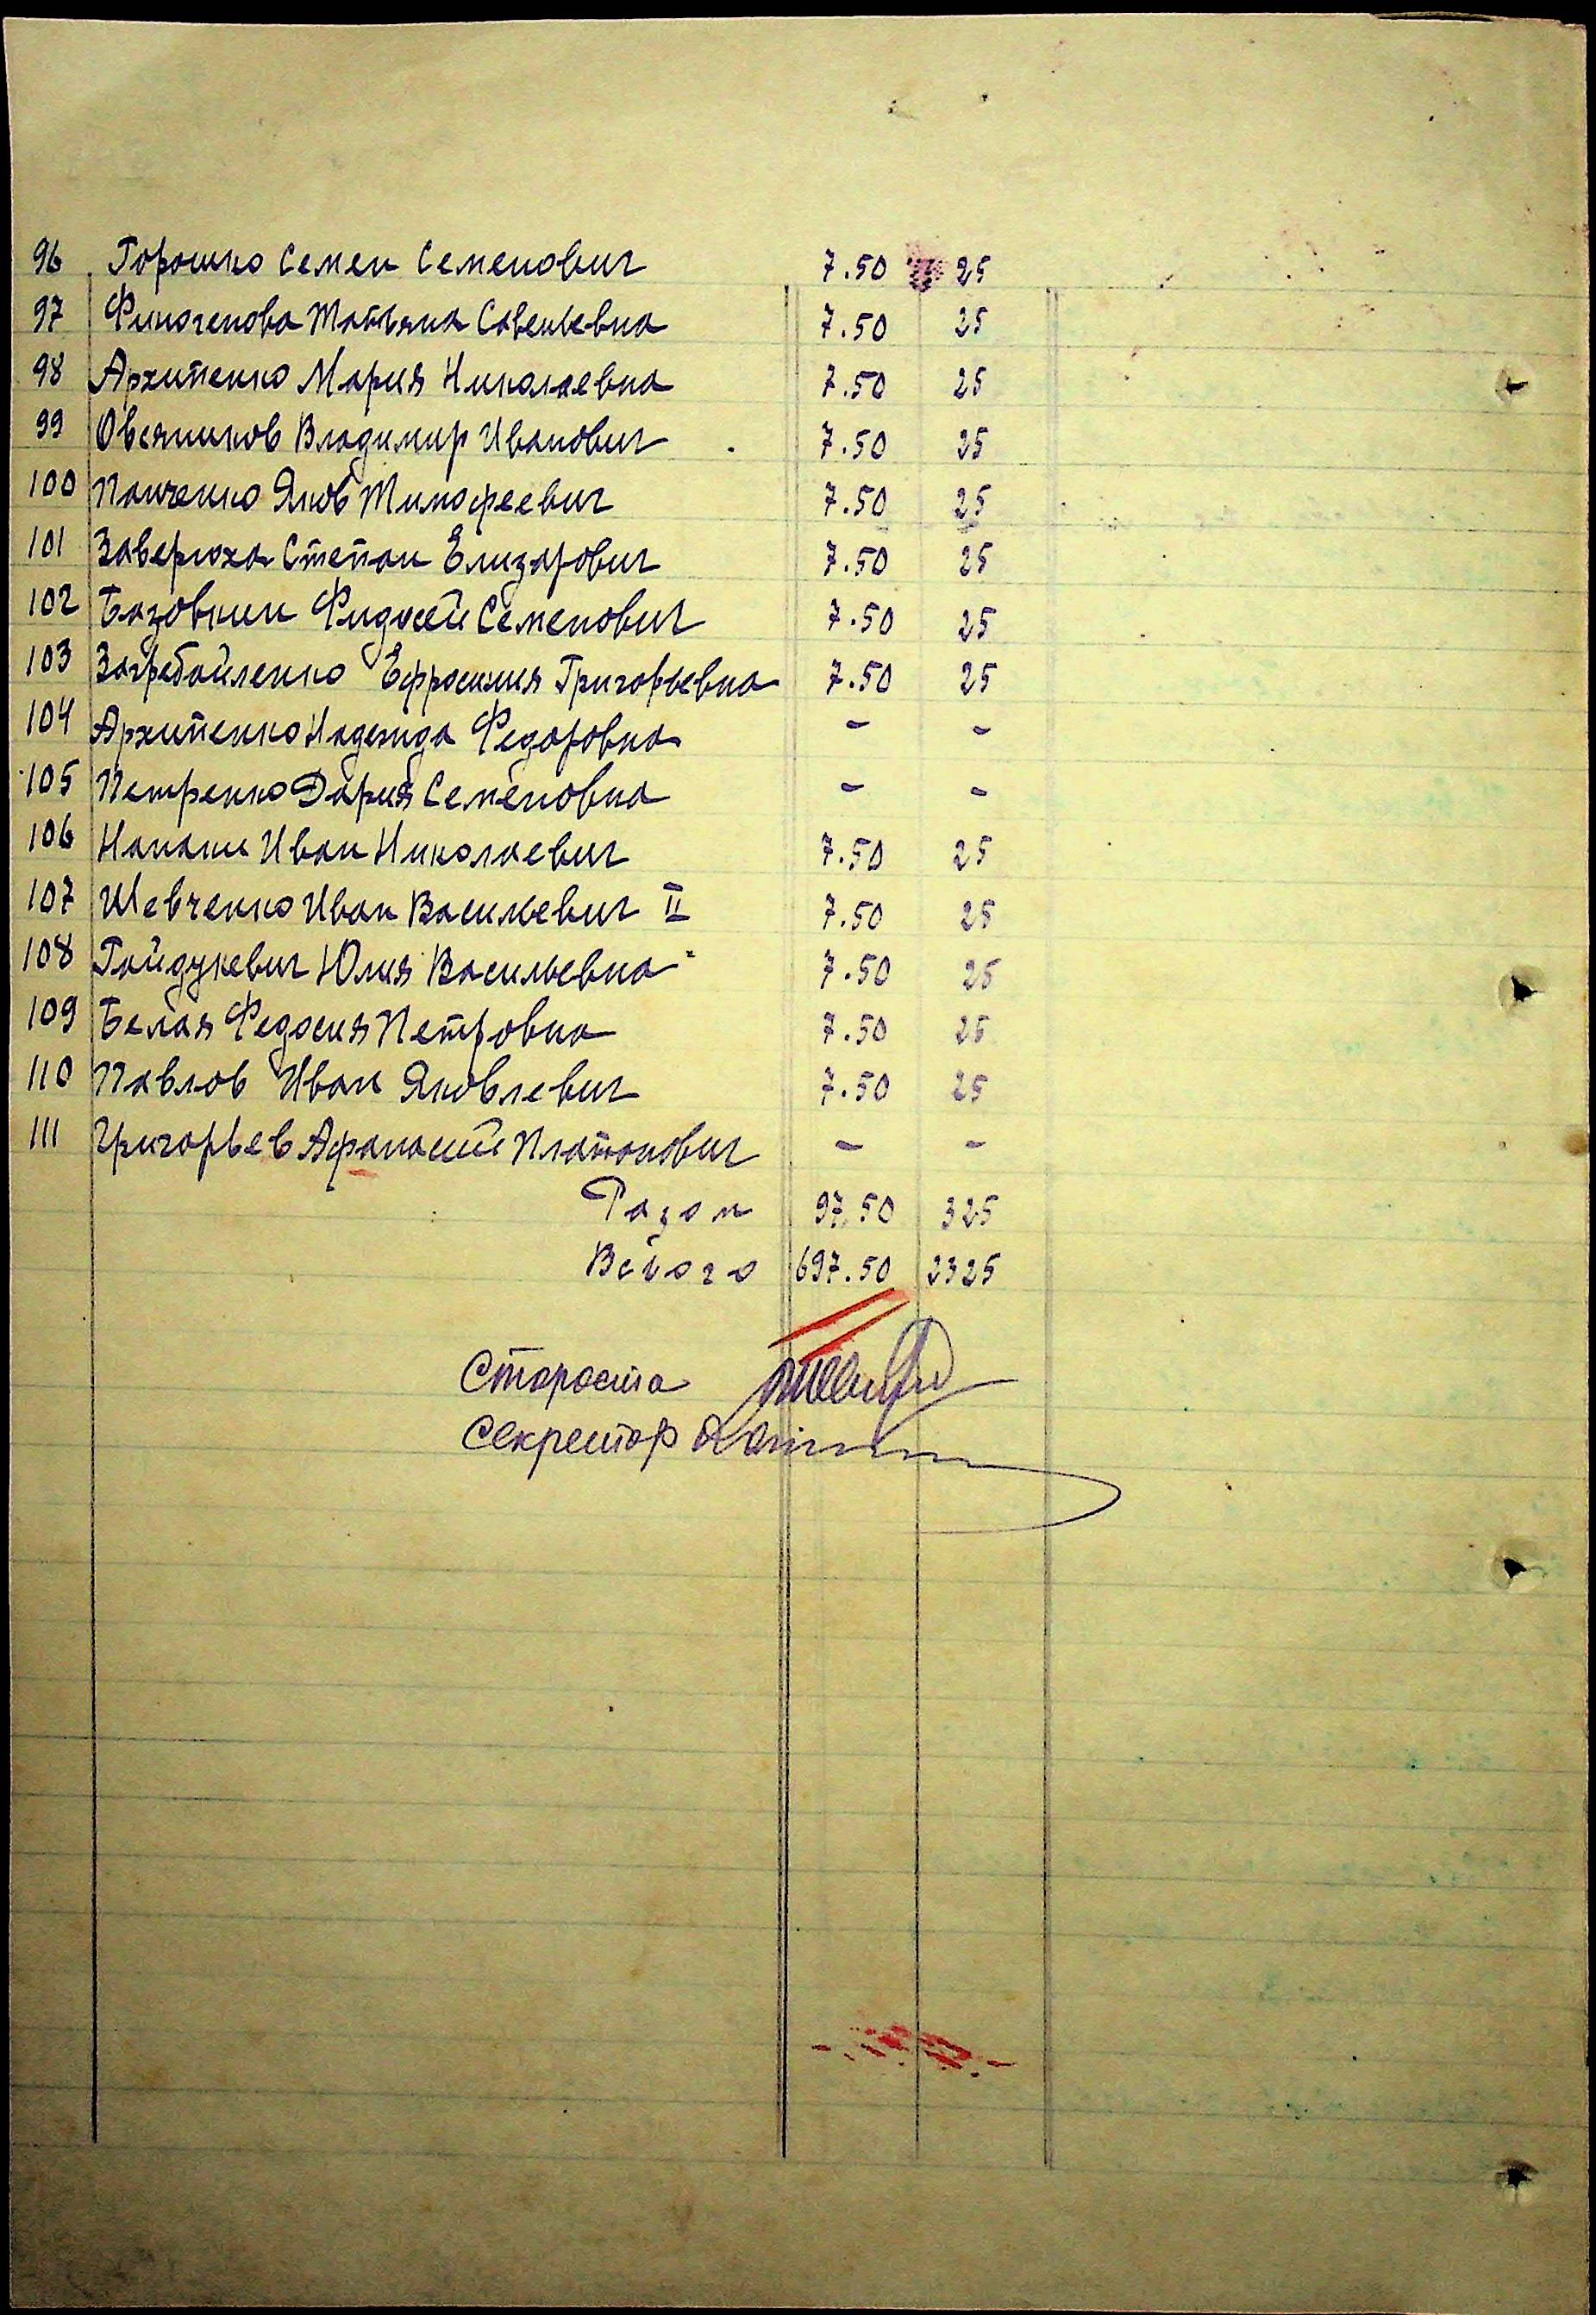 96 Горошко Семен Семенович 7.50 25
97 Финогенова Татьяна Савельевна 7.50 25
98 Архипенко Мария Николаевна 7.50 25
99 Овсяников Владимир Иванович 7.50 25
100 Панченко Яков Тимофеевич 7.50 25
101 Заверюха Степан Елизарович 7.50 25
102 Базовкин Фидосей Семенович 7.50 25
103 Загребайленко Ефросиния Григорьевна 7.50 25
104 Архипенко Надежда Федоровна - -
105 Петренко Дария Семеновна - -
106 Иван Николаевич 7.50 25
107 Шевченко Иван Васильевич II 7.50 25
108 Гайдукевич Юлия Васильевна 7.50 25
109 Белая Федосия Петровна 7.50 25
110 Павлов Иван Яковлевич 7.50 25
111 Григорьев Афанасий Платонович - -
Разом 97.50 325
Всього 697.50 2325
Староста
Секретар